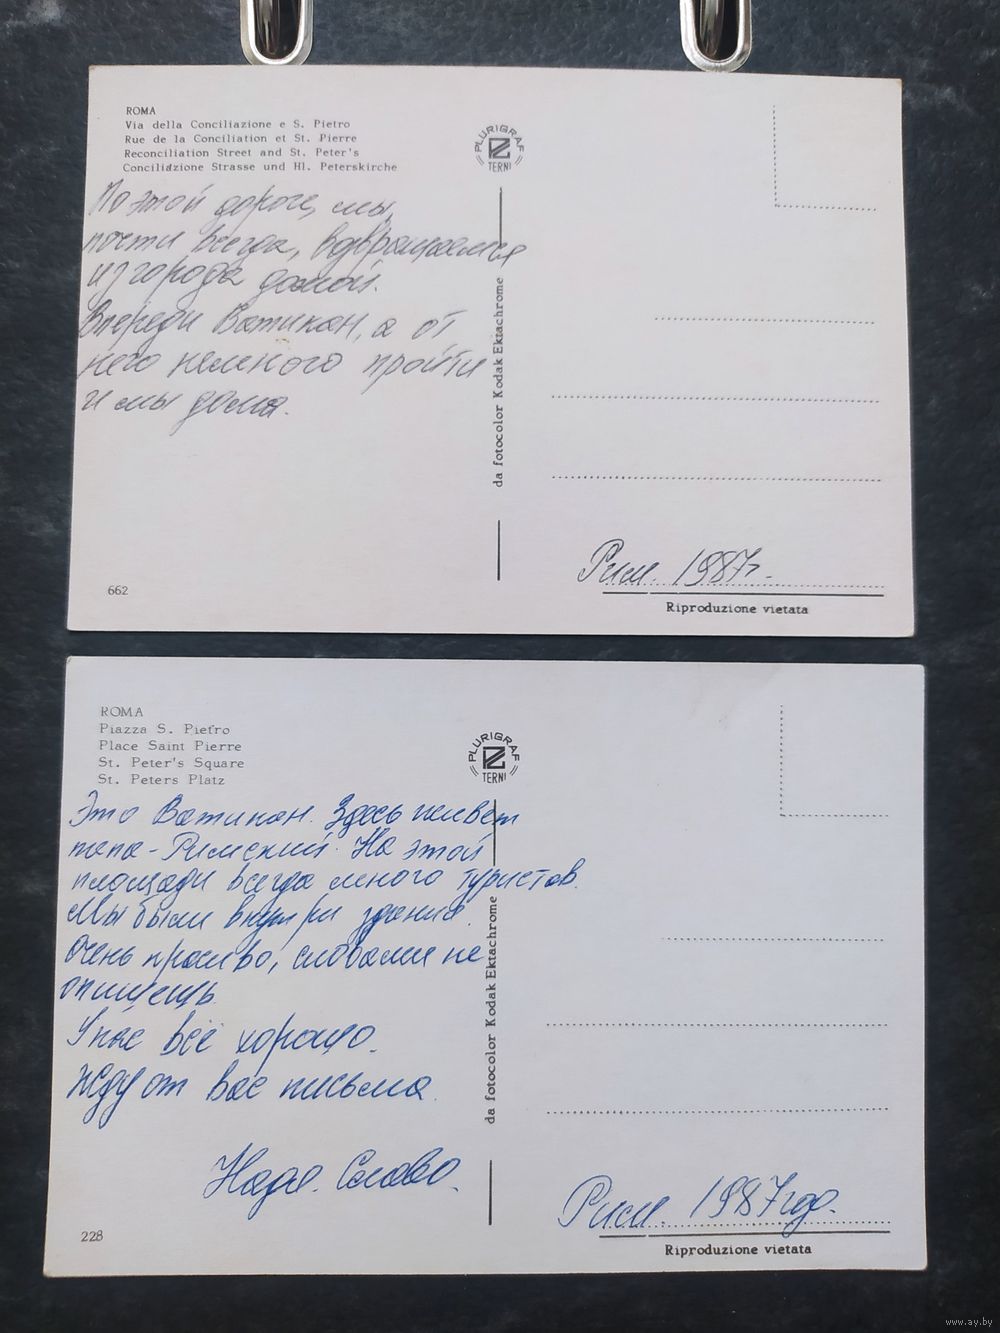 ROMA
Via della Conciliazione e S. Pietro
Rue de la Conciliation et St. Pierre
Reconciliation Street and St. Peter's
Conciliazione Strasse und Hl. Peterskirche
PLURIGRAF
TERNI
По этой дороге, мы,
почти всегда, возвращаемся
из города домой.
Впереди Ватикан, а от
него немного пройти
и мы дома.
da fotocolor Kodak Ektachrome
Рим. 1987г.
662
Riproduzione vietata
ROMA
Piazza S. Pietro
Place Saint Pierre
St. Peter's Square
St. Peters Platz
PLURIGRAF
TERNI
Это Ватикан. Здесь живет
папа-Римский. На этой
площади всегда много туристов.
Мы были внутри здания.
Очень красиво, словами не
опишешь.
У нас всё хорошо.
Жду от вас письма.
Надя. Слава.
da fotocolor Kodak Ektachrome
Рим. 1987 год.
228
Riproduzione vietata
www.ay.by